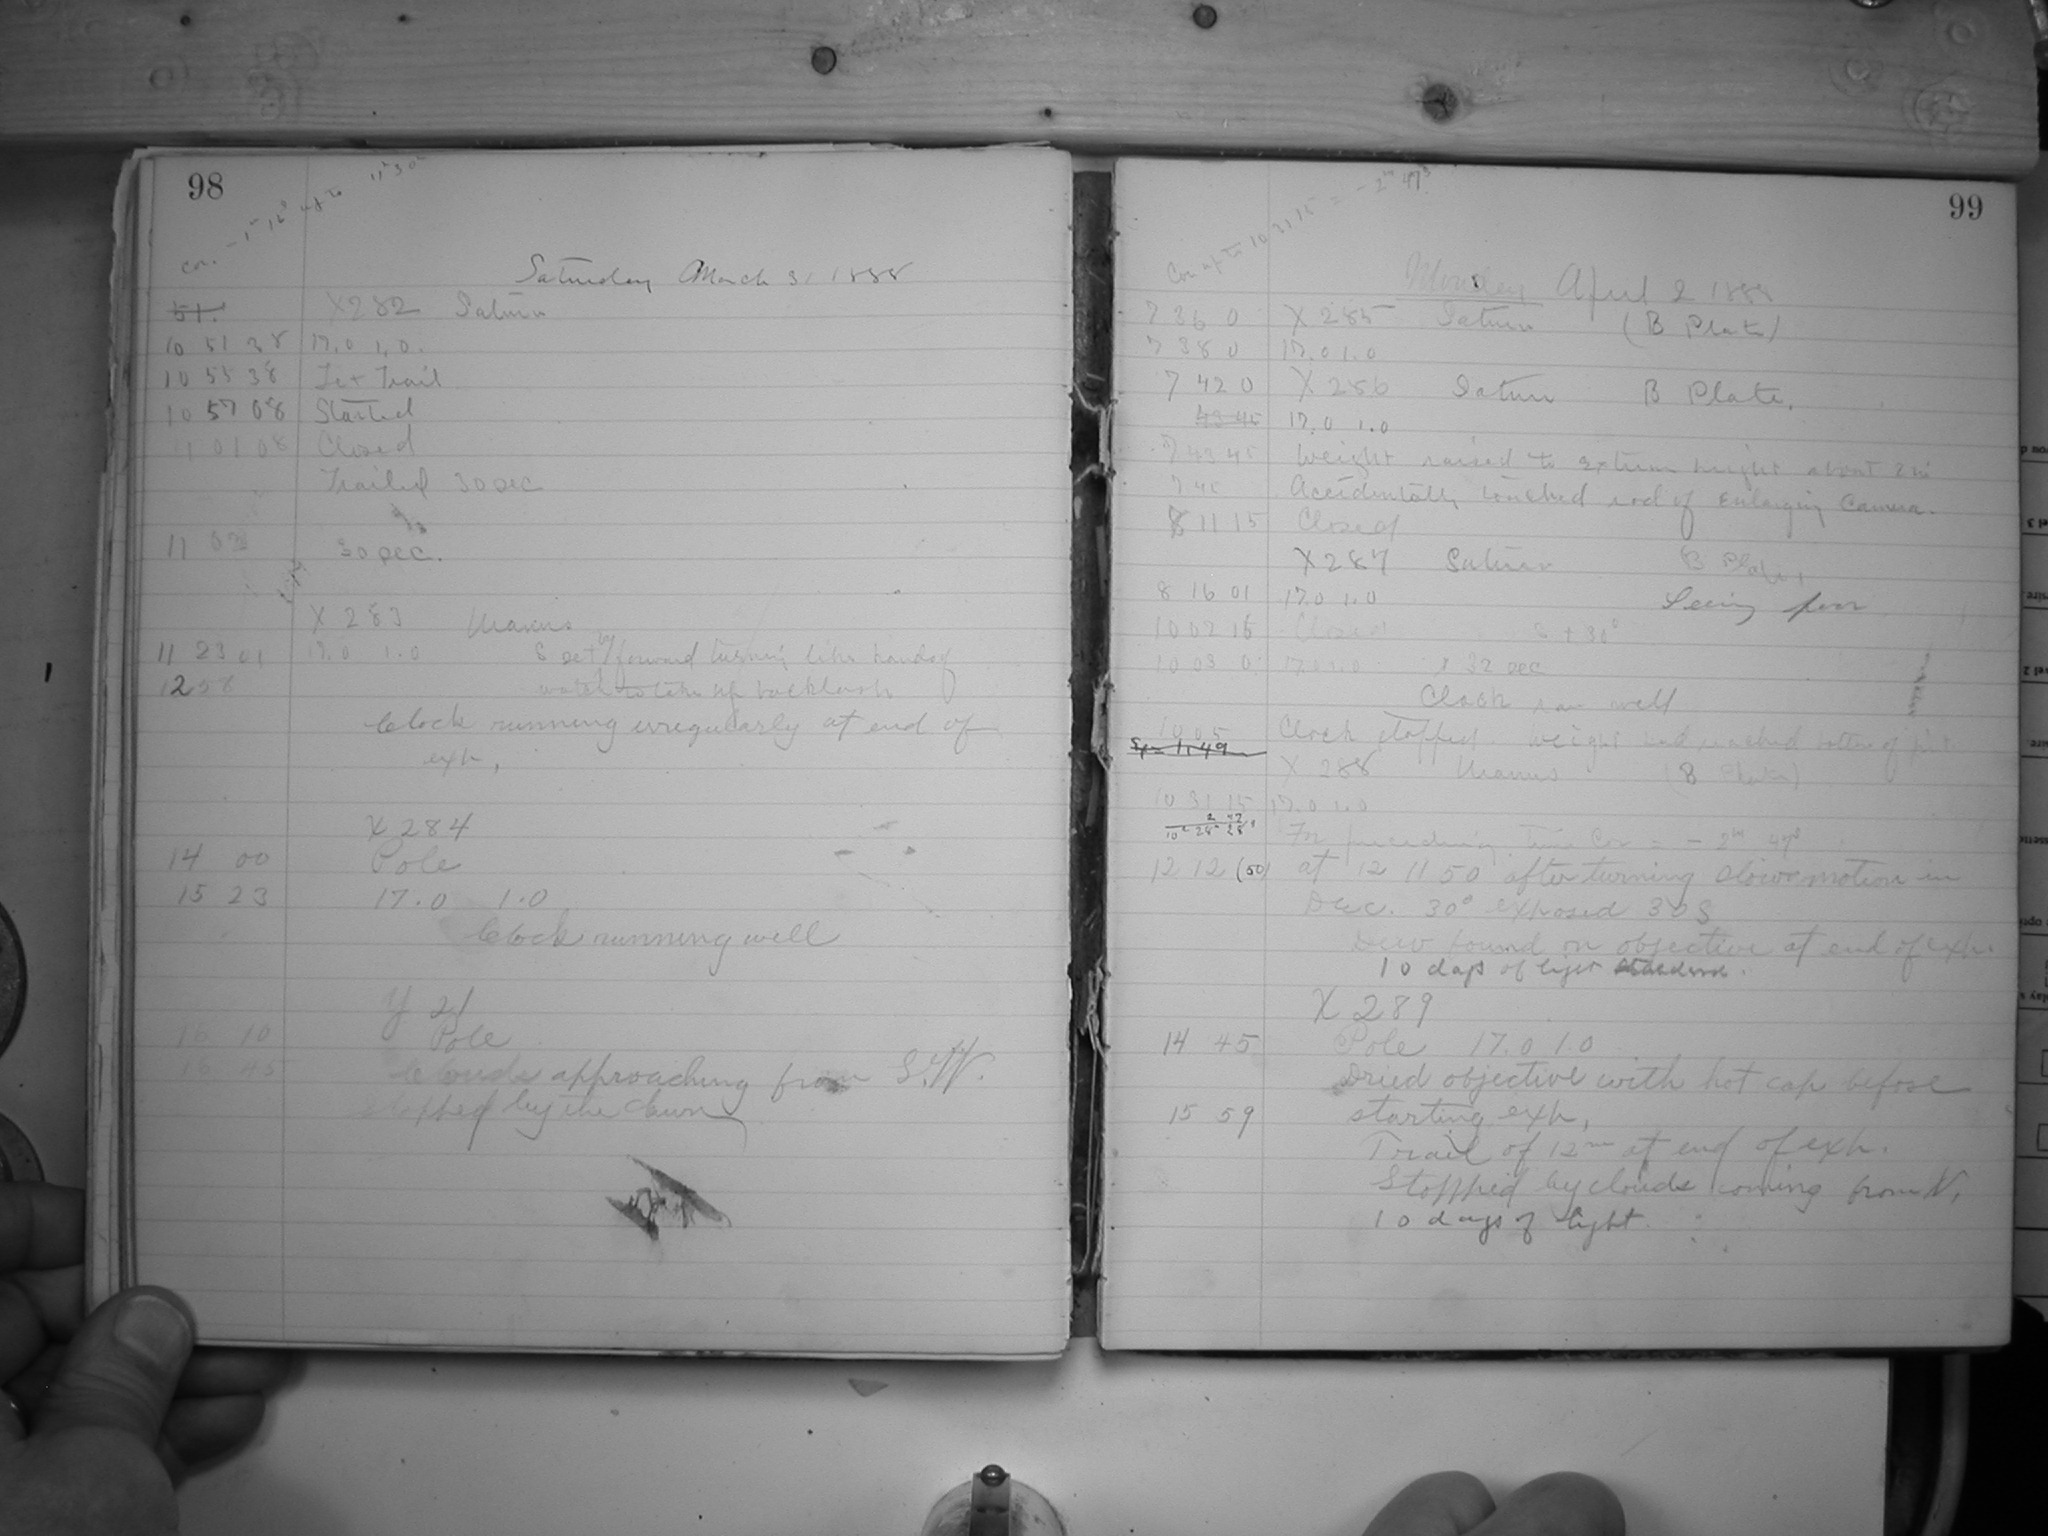 98
cor. - 1 16 up to 11 30
Saturday March 31 1888
51.
X282 Saturn
10 51 38 17.0 1.0.
10 55 38 Trail
10 57 08 Started
11 01 08 Closed
Trailed 30 sec
11 02 30 sec.
X 283 Uranus
11 23 01 17.0 1.0 S set by forward turning like hands of
12 58 watch to take up backlash
Clock running irregularly at end of
exp.
X 284
14 00 Pole
15 23 17.0 1.0
Clock running well
Y 21
16 10 Pole
16 45 Clouds approaching from S.W.
Stopped by the dawn
99
Cor up to 10 31 15 = - 2m 47s
Monday April 2 1888
7 36 0 X 285 Saturn (B Plate)
7 38 0 17.0 1.0
7 42 0 X 286 Saturn B Plate.
43 45 17.0 1.0
7 43 45 Weight raised to extreme height about 2 in
7 46 Accidentally touched rod of enlarging camera.
8 11 15 Closed
X 287 Saturn B Plate,
8 16 01 17.0 1.0 Seeing poor
10 02 15 Closed
10 03 0 17.0 1.0 32 sec
Clock ran well
10 05 Clock stopped weight had reached bottom of
1.49
X 288 Uranus (B Plate)
10 31 15 17.0 1.0
2 47
10 28 28
For preceding time Cor = - 2m 47s
12 12 (50) at 12 11 50 after turning slow motion in
Dec. 30° exposed 30S
Dew found on objective at end of exp.
10 days of light
X 289
14 45 Pole 17.0 1.0
Dried objective with hot cap before
15 59 starting exp,
Trail of 12m at end of exp.
Stopped by clouds coming from N,
10 days of light.